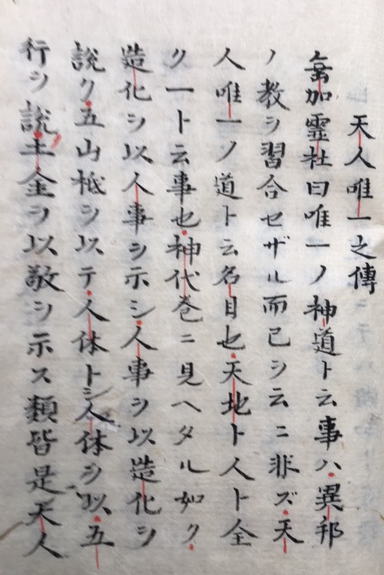 天人唯一之傳
垂加霊社曰唯一ノ神道ト云事ハ異邦
ノ教ヲ習合セザル而已ヲ云ニ非ズ天
人唯一ノ道ト云名目也天地ト人ト全
ク一ト云事也神代巻ニ見ヘタル如ク
造化ヲ以人事ヲ示シ人事ヲ以造化ヲ
説ク五山祇ヲ以テ人体トシ人体ヲ以五
行ヲ説土金ヲ以敬ヲ示ス類皆是天人